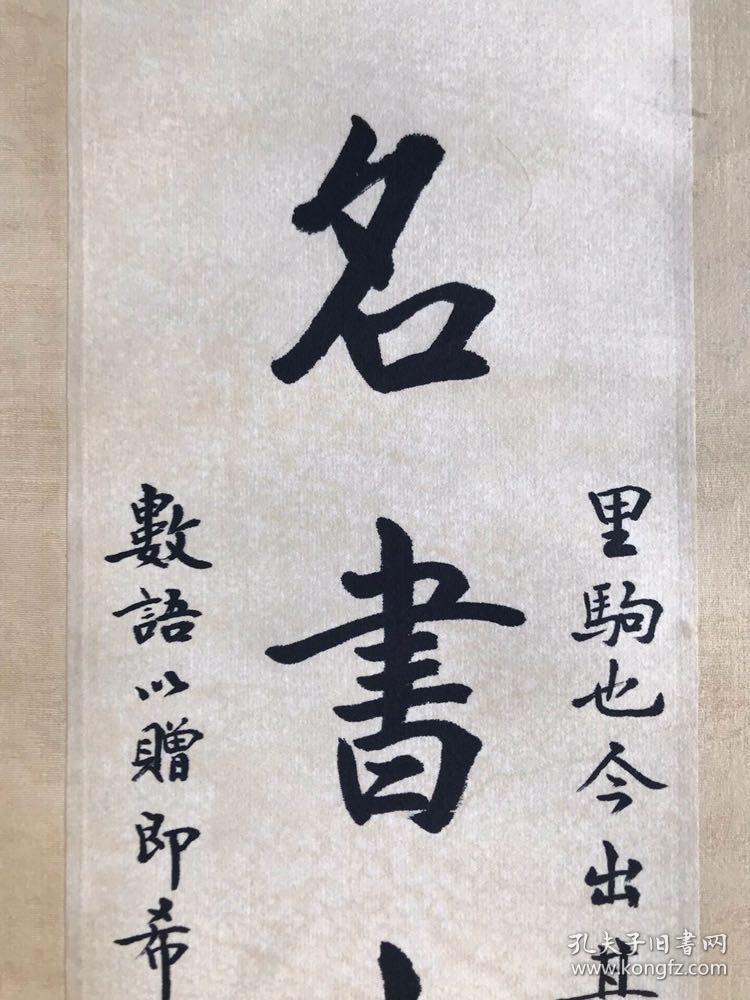 里駒也今出其
名書
數語以贈即希
孔夫子旧書网
www.kongfz.com